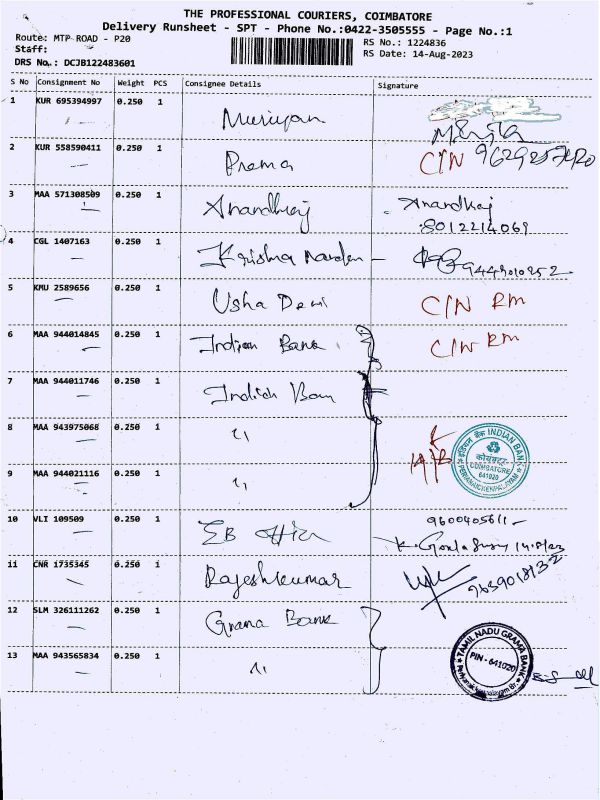 THE PROFESSIONAL COURIERS, COIMBATORE
Delivery Runsheet - SPT - Phone No.:0422-3505555 - Page No.:1
Route: MTP ROAD - P20
Staff:
RS No.: 1224836
RS Date: 14-Aug-2023
DRS No.: DCJB122483601
S No Consignment No Weight PCS Consignee Details Signature
1 KUR 695394997 0.250 1
2 KUR 558590411 0.250 1 Prema C/N
3 MAA 571308509 0.250 1 Anandhraj Anandhraj
8012214069
4 CGL 1407163 0.250 1 Krishna
5 KMU 2589656 0.250 1 Usha Devi C/N RM
6 MAA 944014845 0.250 1 Indian Bank C/N RM
7 MAA 944011746 0.250 1 Indian Ban
8 MAA 943975068 0.250 1 "
इंडियन बैंक INDIAN BANK
कोयंबत्तूर
COIMBATORE
641020
PERIANAICKENPALAYAM
9 MAA 944021116 0.250 1 "
10 VLI 109509 0.250 1 EB Office 9600405611
11 CNR 1735345 0.250 1 Rajeshkumar 9639018132
12 SLM 326111262 0.250 1 Grama Bank
13 MAA 943565834 0.250 1 "
TAMIL NADU GRAMA BANK
PIN - 641020